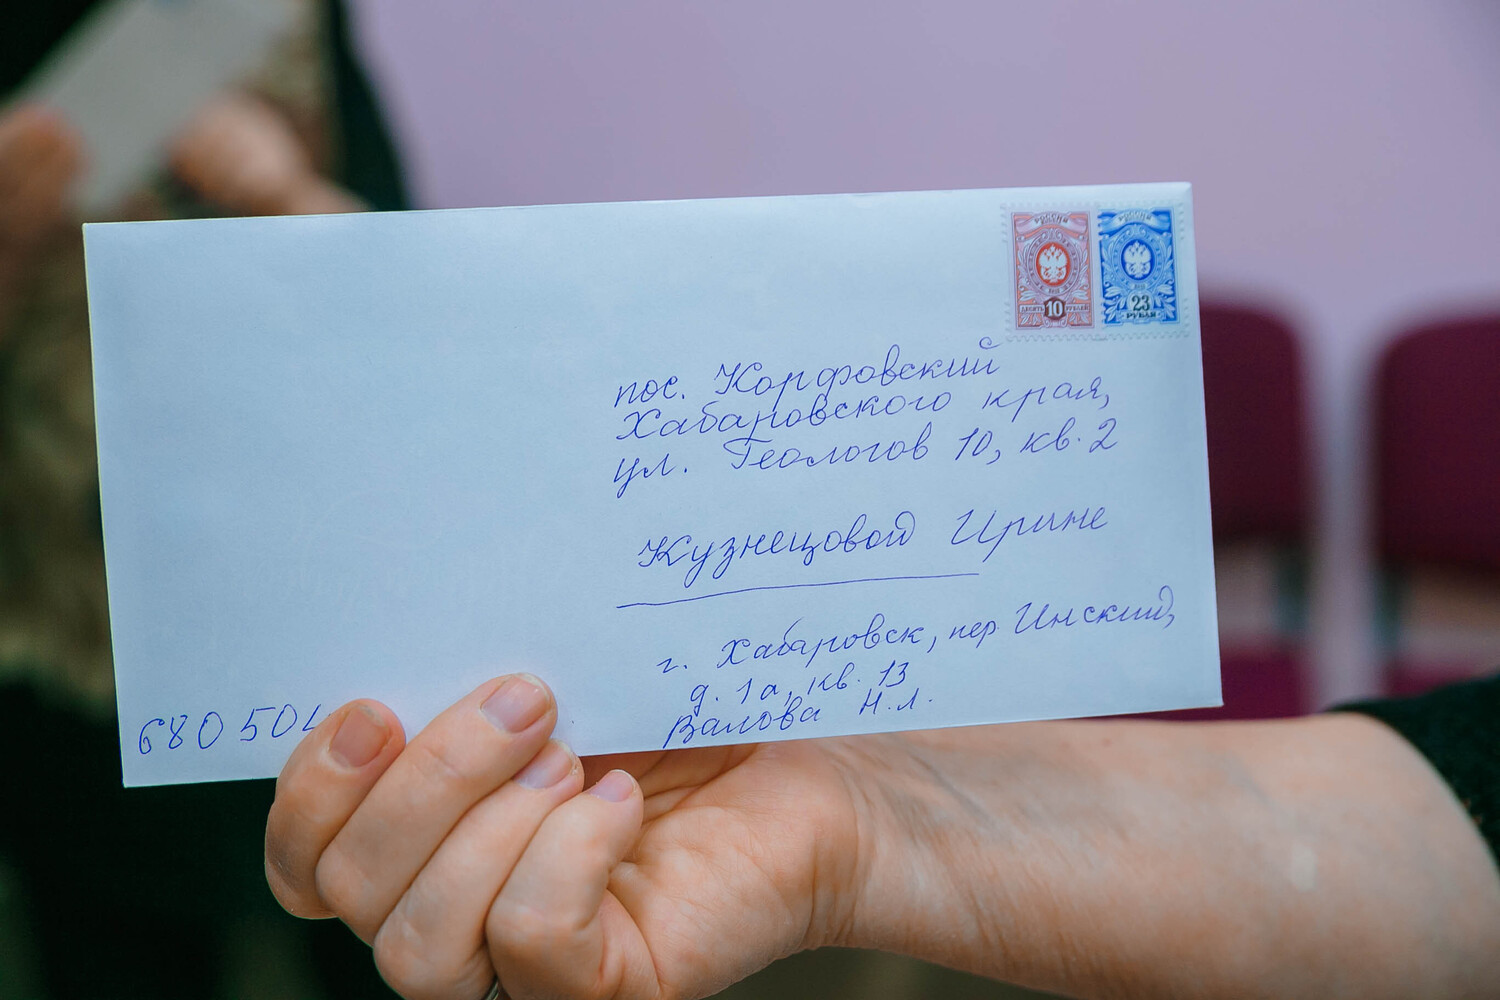 РОССИЯ
10
РУБЛЕЙ
РОССИЯ
23
РУБЛЯ
пос. Корфовский
Хабаровского края,
ул. Геологов 10, кв. 2
Кузнецовой Ирине
г. Хабаровск, пер Инский,
д. 1а, кв. 13
Валова Н.Л.
680504